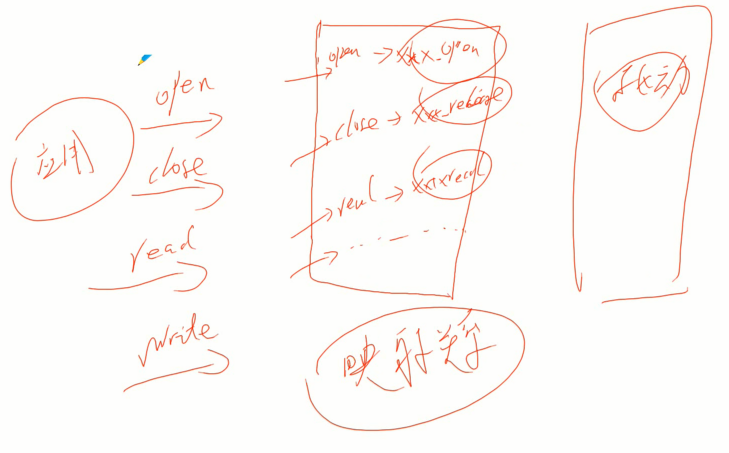 应用
open
close
read
write
open → xxx_open
close → xxx_release
read → xxxread
... — ...
映射关系
驱动